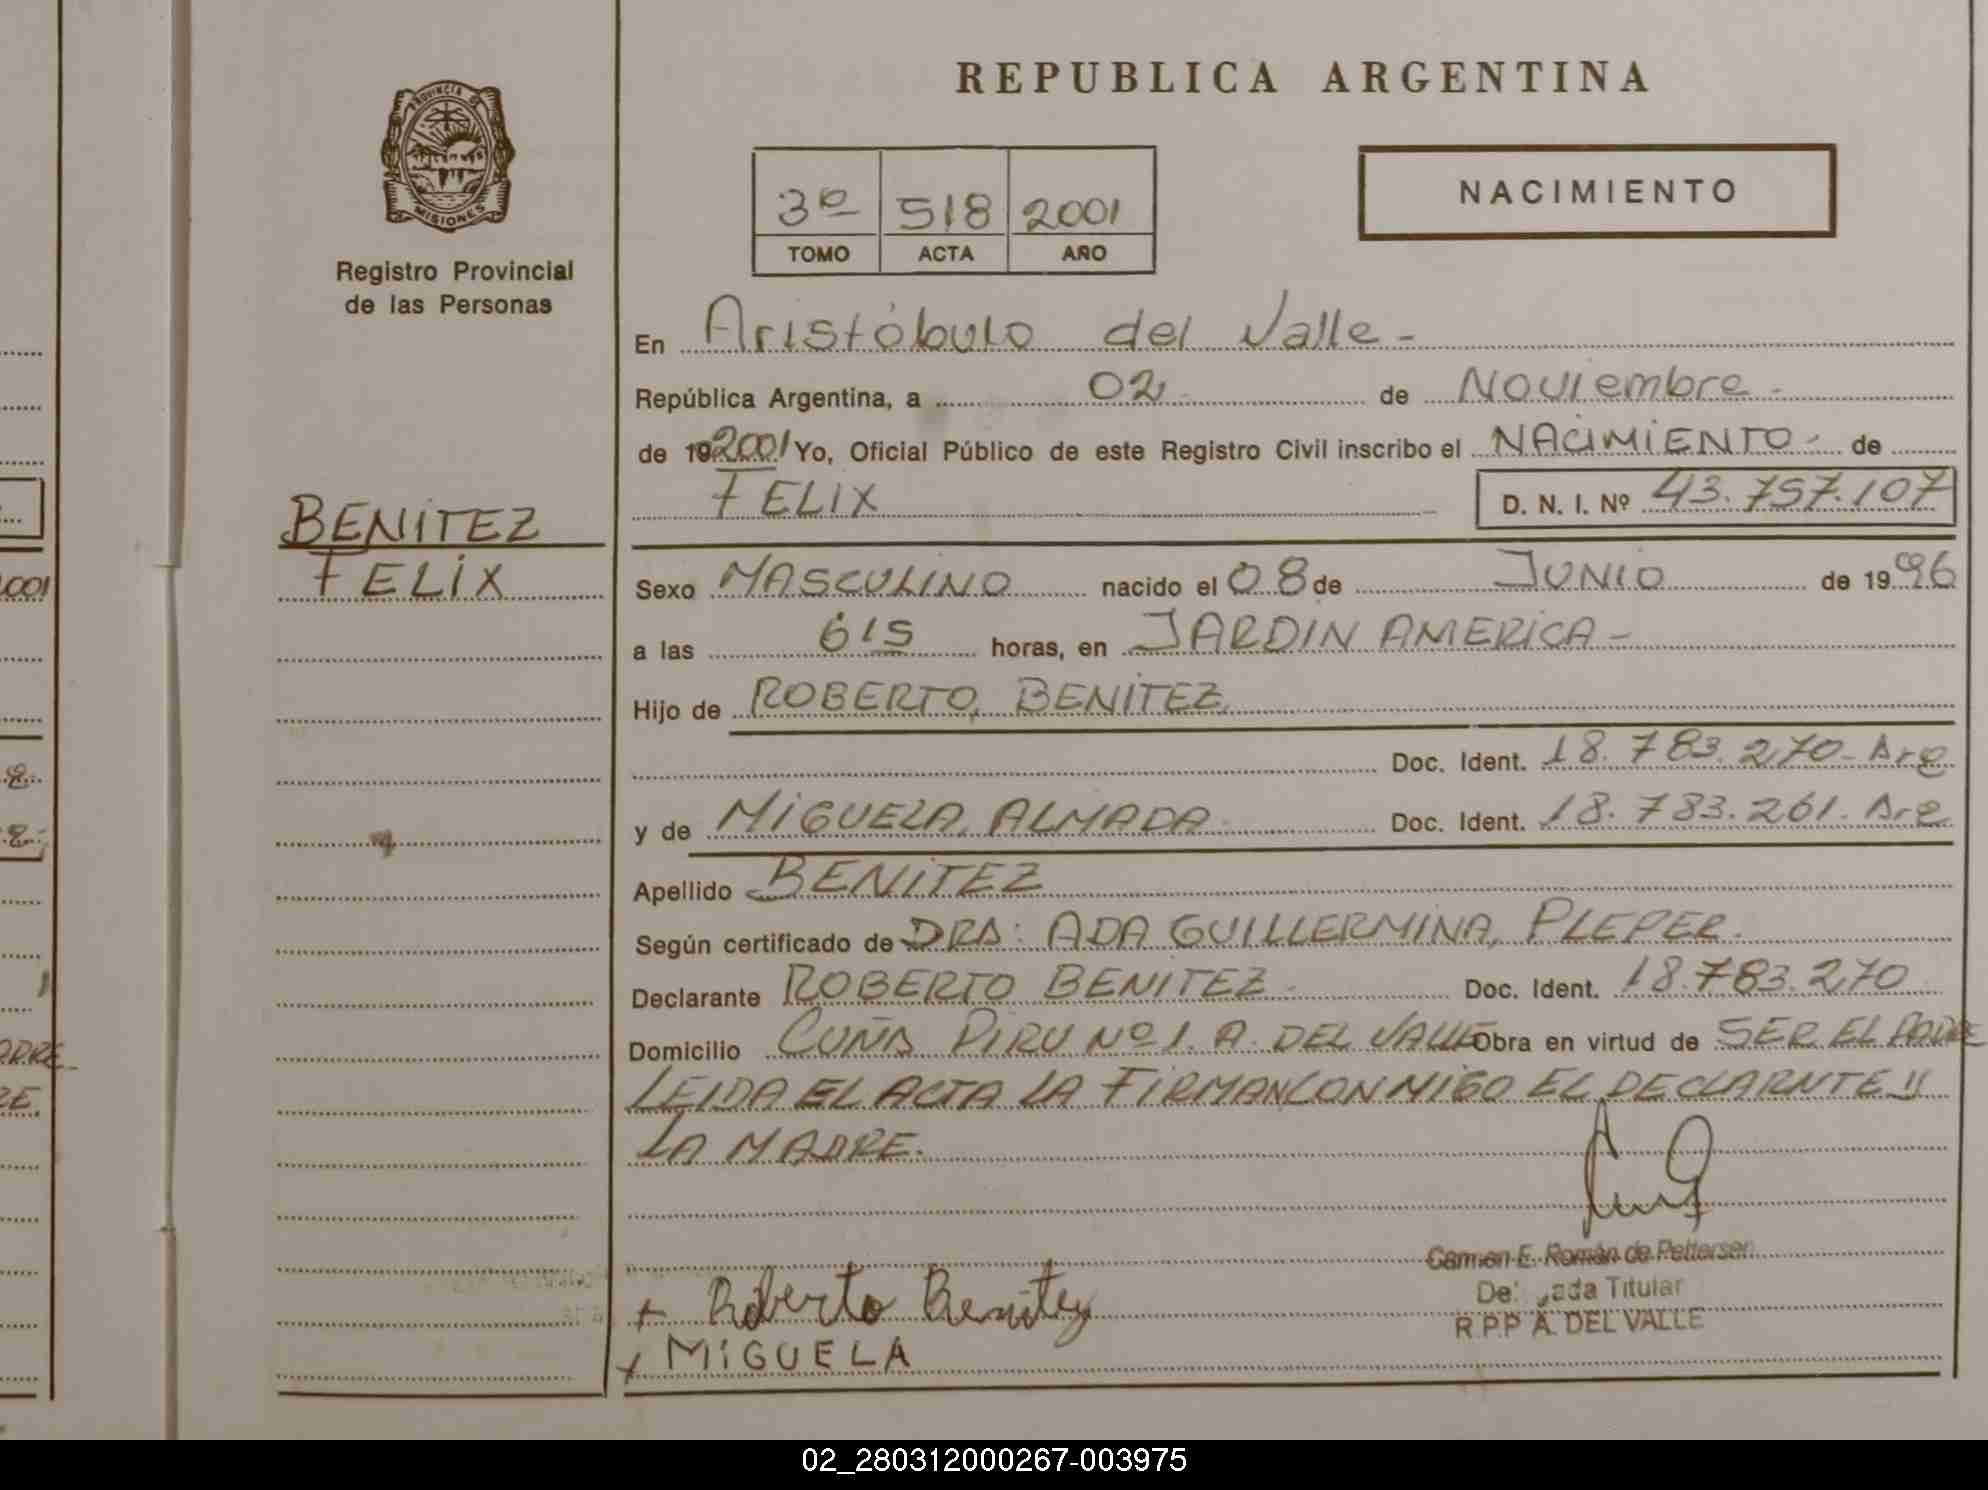 REPUBLICA ARGENTINA
PROVINCIA DE
MISIONES
Registro Provincial
de las Personas
3º 518 2001
TOMO ACTA AÑO
NACIMIENTO
En Aristóbulo del Valle -
República Argentina, a 02 - de Noviembre -
de 19 2001 Yo, Oficial Público de este Registro Civil inscribo el NACIMIENTO - de
FELIX D. N. I. Nº 43.757.107
BENITEZ
FELIX
Sexo MASCULINO nacido el 08 de JUNIO de 1996
a las 6 15 horas, en JARDIN AMERICA -
Hijo de ROBERTO, BENITEZ
Doc. Ident. 18.783.270 - Arg
y de MIGUELA, ALMADA Doc. Ident. 18.783.261. Arg
Apellido BENITEZ
Según certificado de DRA: ADA GUILLERMINA, PLEPER.
Declarante ROBERTO BENITEZ - Doc. Ident. 18.783.270
Domicilio CUÑA PIRU Nº 1. A. DEL VALLE Obra en virtud de SER EL PADRE
LEIDA EL ACTA LA FIRMAN CONMIGO EL DECLARNTE y
LA MADRE.
Carmen E. Román de Pettersen
Titular
R.P.P A. DEL VALLE
+ Roberto Benitez
+ MIGUELA
001
ADRE
RE
02_280312000267-003975